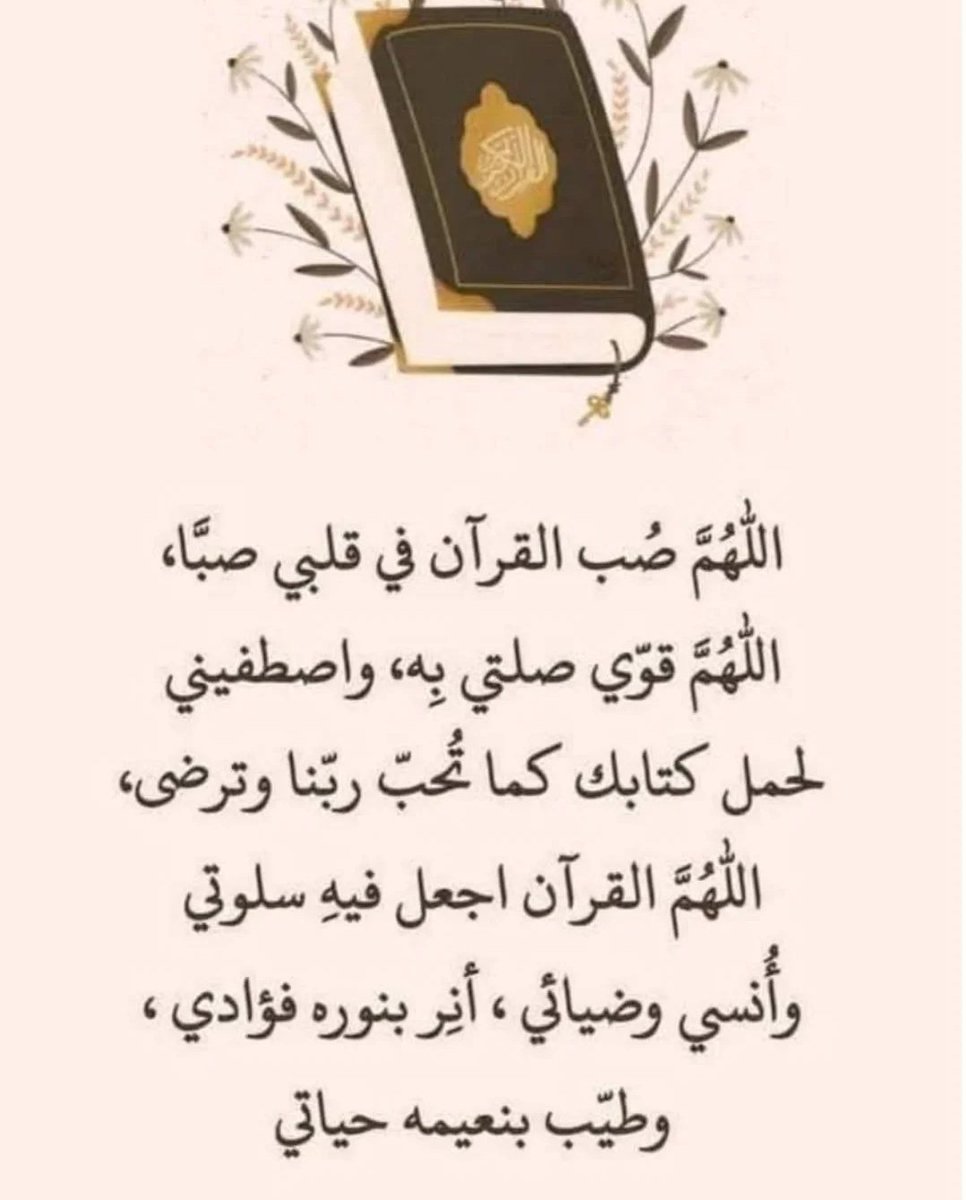 القرآن الكريم
اللّٰهُمَّ صُب القرآن في قلبي صبَّا،
اللّٰهُمَّ قوّي صلتي بِه، واصطفيني
لحمل كتابك كما تُحبّ ربّنا وترضى،
اللّٰهُمَّ القرآن اجعل فيهِ سلوتي
وأُنسي وضيائي ، أنِر بنوره فؤادي ،
وطيّب بنعيمه حياتي